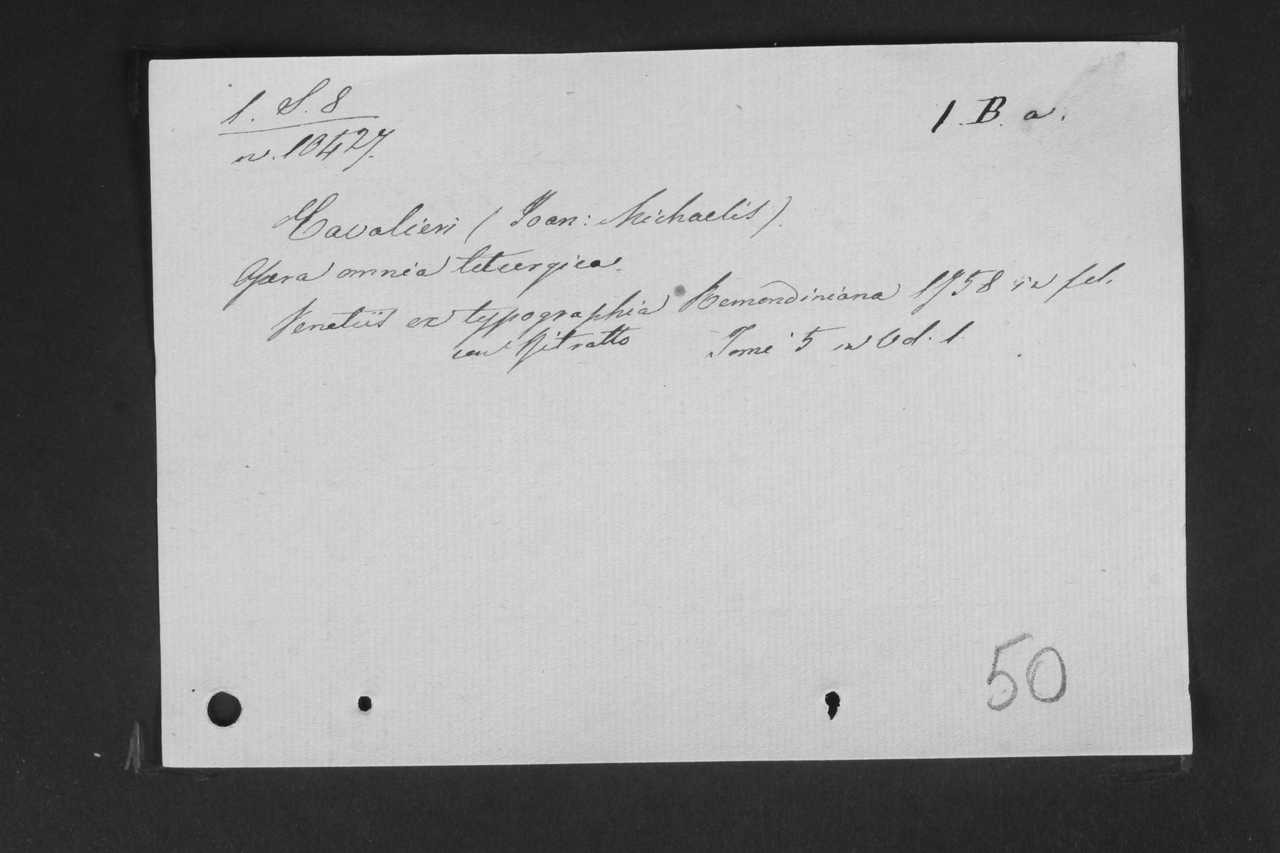 1. S. 8
1 B. a.
n. 10427.
Cavalieri (Joan: Michaelis).
Opera omnia liturgica.
Venetiis ex typographia Remondiniana 1758 in fol.
con Ritratto Tomi 5 in Vol. 1
50